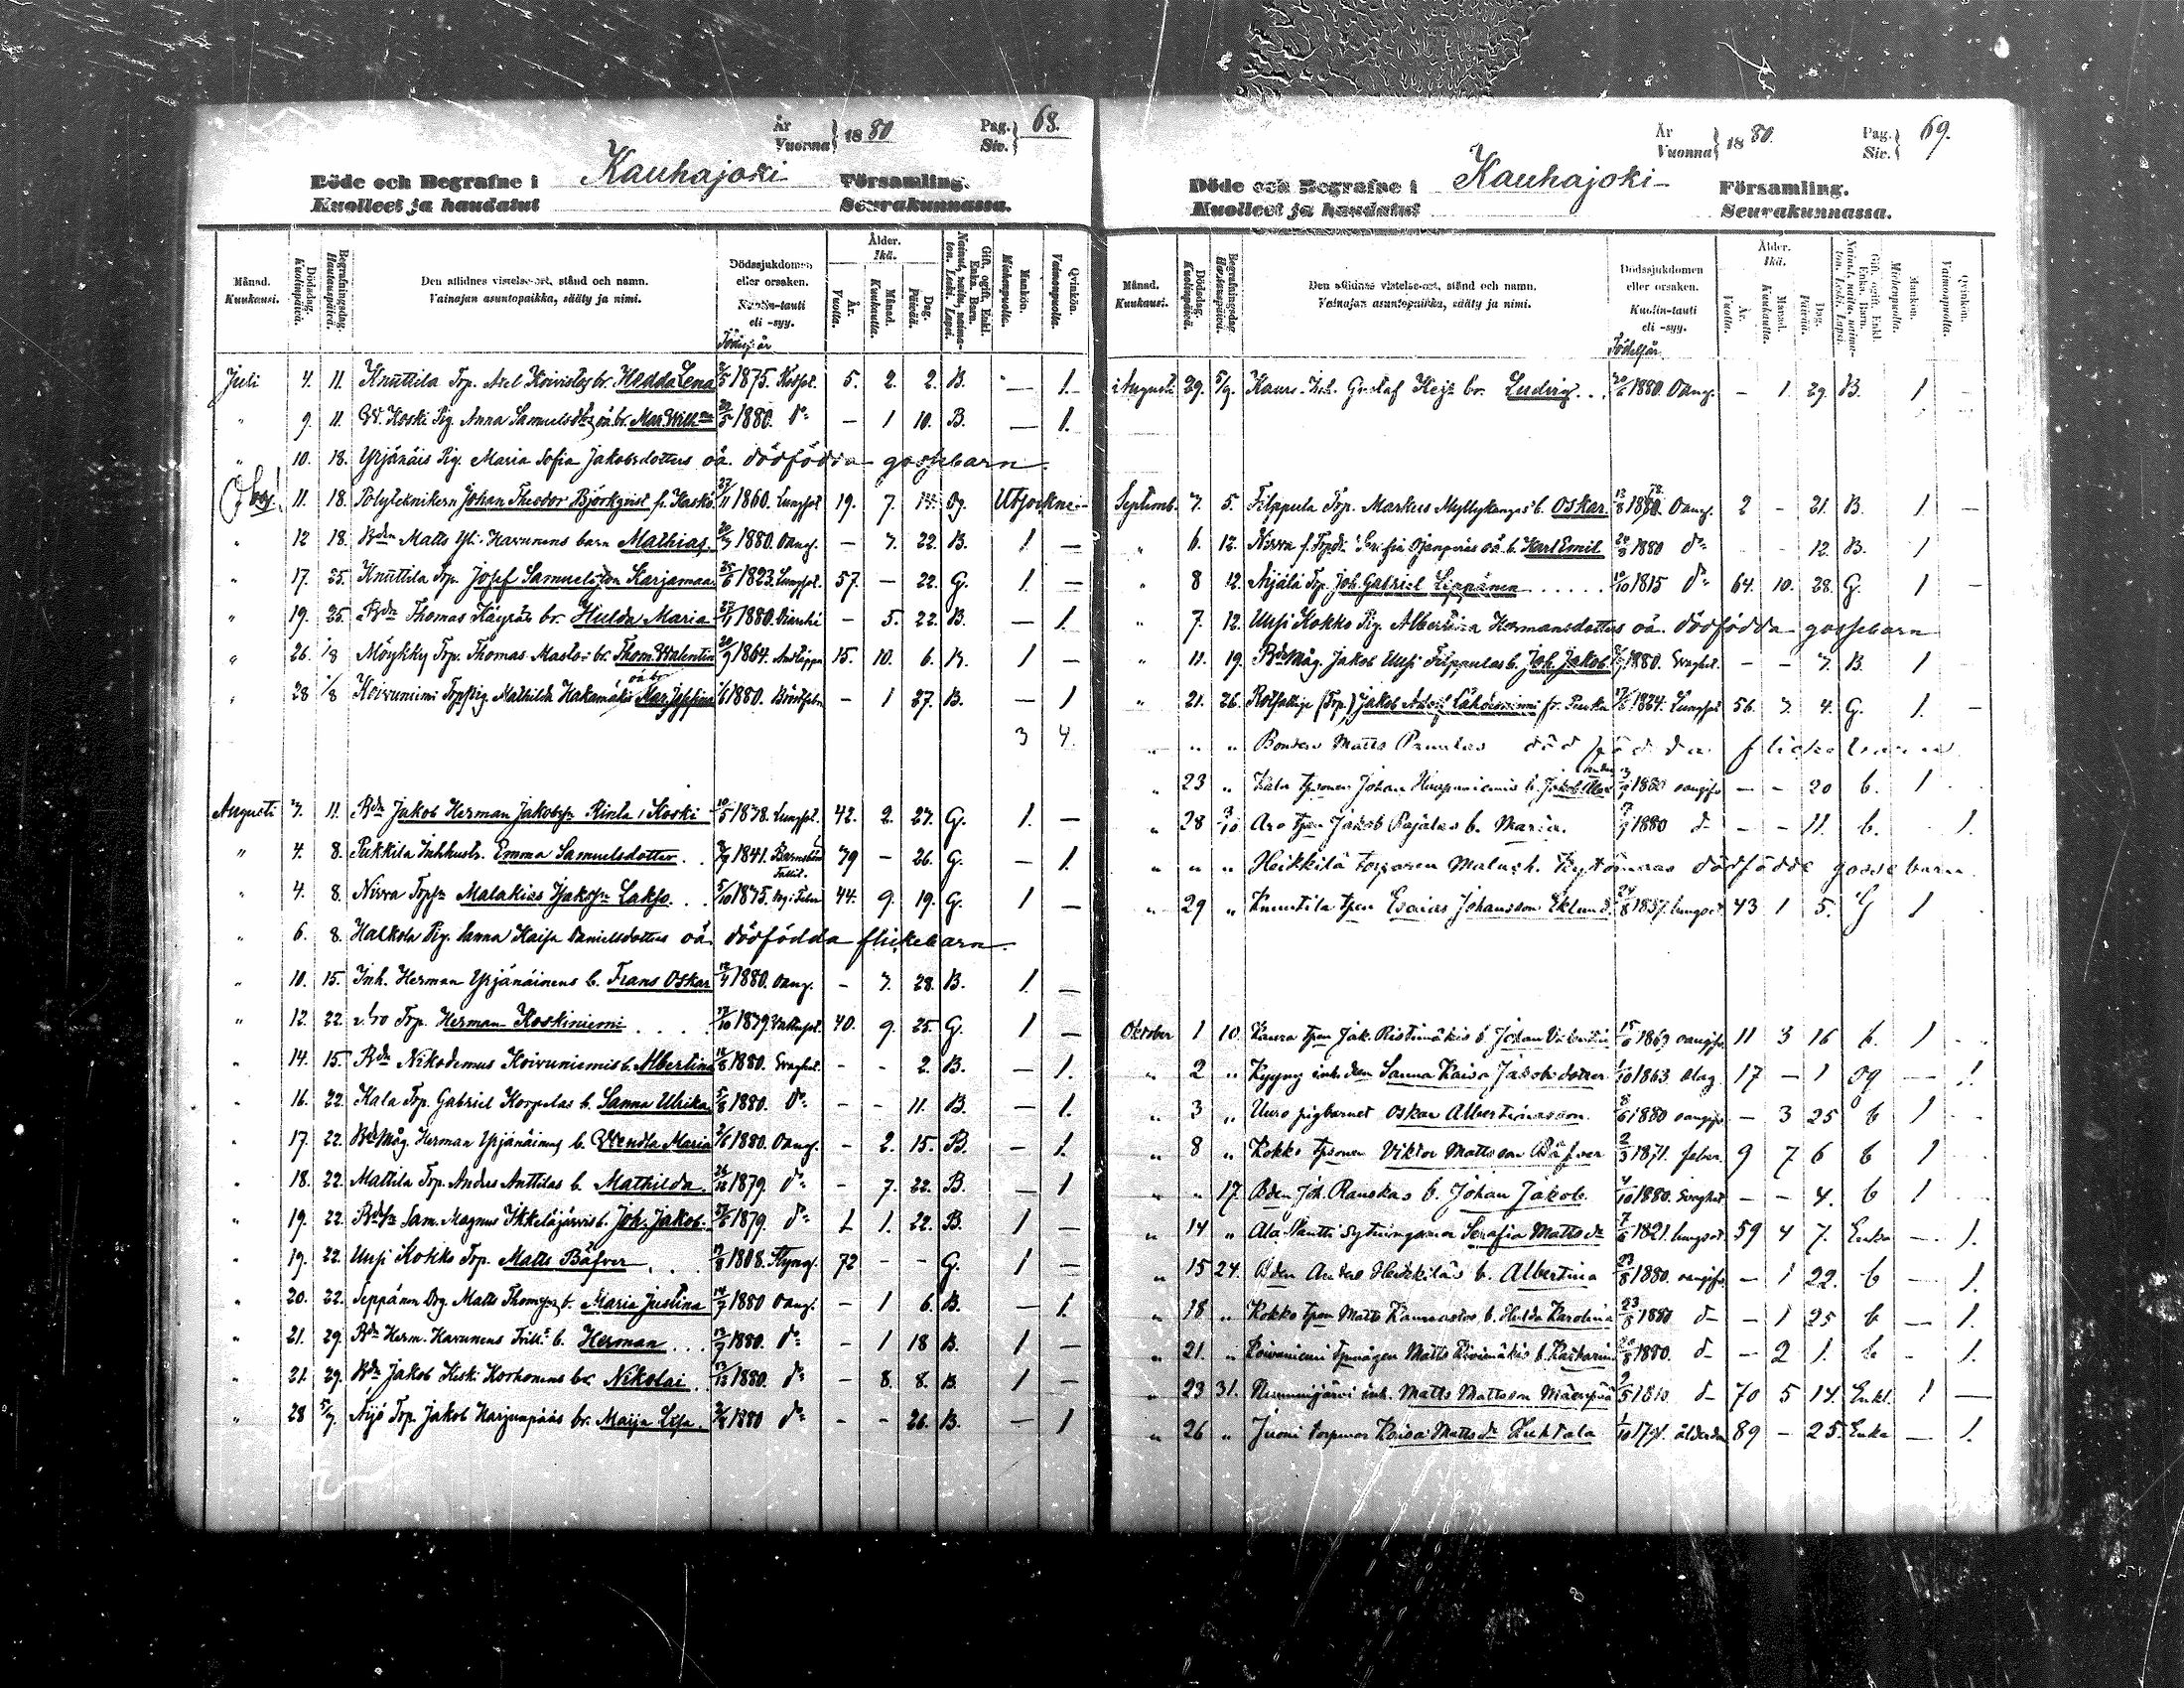 År Vuonna 1880 Pag. Siv. 68.
Döde och Begrafne i Kauhajoki Församling.
Kuolleet ja haudatut Seurakunnassa.
Månad. Kuukausi. Dödsdag. Kuolinpäivä. Begrafningsdag. Hautauspäivä. Den aflidnes vistelse-ort, stånd och namn. Vainajan asuntopaikka, sääty ja nimi. Dödssjukdomen eller orsaken. Kuolin-tauti eli -syy. Ålder. Ikä. År. Vuotta. Månad. Kuukautta. Dag. Päivää. Gift, ogift, Enkl. Enka. Barn. Mankön. Miehenpuolta. Qvinkön. Vaimonpuolta.
Juli 4. 11. Knuttila Trp. Axel Koivistos br. Hedda Lena 1875. 5. 2. 2. B. — 1.
" 9. 11. Koski Pig. Anna Samuelsdtrs oä br. 1880. do — 1 10. B. — 1.
" 10. 18. Yrjänäis Pig. Maria Sofia Jakobsdotters oä. dödfödda gossebarn
11. 18. Polyteknikern Johan Theodor Björkqvist fr. Kaskö 27/11 1860. Lungsot 19. 7. 14. Og. Utsockne
" 12 18. Bdn Matts Yli-Havunens barn Mathias 20/7 1880. Oang. — 22. B. 1 —
" 17. 25. Knuttila Trp. Josef Samuelsson Karjamaa 25/6 1823. Lungsot. 57. — 22. G. 1. —
" 19. 25. Bdn Thomas Käyräs br. Hulda Maria 27/1 1880. — 5. 22. B. — 1.
" 26. 1/8 Möykky Trp. Thomas br. Thom. Walentin 20/9 1864. 15. 10. 6. B. 1 —
" 28 1/8 Koivuniemi Mathilda Hakamäkis oä br. Mar. Josefina 1/6 1880. — 1 27. B. — 1
3 4.
Augusti 7. 11. Bdn Jakob Herman Jakobsson Rinta Koski 10/5 1838. Lungsot. 42. 2. 27. G. 1. —
" 4. 8. Pukkila Inhhustr. Emma Samuelsdotter 1841. 39 — 26. G. — 1.
" 4. 8. Nirva Malakias Lakso 5/10 1835. 44. 9. 19. G. 1 —
" 6. 8. Halkola Pig. Sanna Kaisa Danielsdotters oä. dödfödda flickebarn
" 10. 15. Inh. Herman Yrjänäinens b. Frans Oskar 12/4 1880. Oang. — 28. B. 1. —
" 12. 22. Aro Trp. Herman Koskiniemi 17/10 1839. 40. 9. 25. G. 1 —
" 14. 15. Bdn Nikodemus Koivuniemis b. Albertina 12/8 1880. Svaghet. — — 2. B. — 1.
" 16. 22. Kala Trp. Gabriel Korpelas b. Sanna Ulrika 5/8 1880. do — — 11. B. — 1.
" 17. 22. Bd Måg. Herman Yrjänäinens b. Wendla Maria 2/6 1880. Oang. — 2. 15. B. — 1.
" 18. 22. Mattila Trp. Anders Anttilas b. Mathilda 26/12 1879. do — 7. 22. B. — 1
" 19. 22. Sam. Magnus Ikkeläjärvis b. Joh. Jakob 27/6 1879. do 1 1. 22. B. 1 —
" 19. 22. Uusi Kokko Trp. Matts Bäfver 1808. Styng. 72 — — G. 1 —
" 20. 22. Seppänen Drg. Matts Thomass. b. Maria Justina 14/7 1880 Oang. — 1 6. B. — 1.
" 21. 29. Bdn Herm. Havunens b. Herman 1880. do — 1 18 B. 1 —
" 21. 29. Bdn Jakob Keski Korhonens br. Nikolai 13/12 1880. do — 8. 8. B. 1 —
" 28 5/9 Äijö Trp. Jakob Harjunpääs br. Maija Lisa 2/8 1880 do — — 26. B. — 1
År Vuonna 1880. Pag. Siv. 69.
Döde och Begrafne i Kauhajoki Församling.
Kuolleet ja haudatut Seurakunnassa.
Månad. Kuukausi. Dödsdag. Kuolinpäivä. Begrafningsdag. Hautauspäivä. Den aflidnes vistelse-ort, stånd och namn. Vainajan asuntopaikka, sääty ja nimi. Dödssjukdomen eller orsaken. Kuolin-tauti eli -syy. Ålder. Ikä. År. Vuotta. Månad. Kuukautta. Dag. Päivää. Gift, ogift, Enkl. Enka. Barn. Mankön. Miehenpuolta. Qvinkön. Vaimonpuolta.
Augusti 29. 5/9. Inh. Gustaf br. Ludvig 1880. Oang. — 1. 29. B. 1 —
Septemb. 3. 5. Filppula Trp. Markus Myllykangas b. Oskar 13/8 Oang. 2 — 21. B. 1 —
" 6. 12. Nirva oä b. Karl Emil 1880 do — 12. B. 1
" 8 12. Äijälä Trp. Joh. Gabriel Leppänen 10/10 1815 do 64. 10. 28. G. 1 —
" 7. 12. Uusi Kokko Pig. Albertina Hermansdotters oä. dödfödda gossebarn
" 11. 19. Måg. Jakob Uusi Filppulas b. Joh. Jakob 1880. Svaghet. — — 7. B. 1
" 21. 26. (Trp.) Jakob Adolf Lähdesniemi 1824. Lungsot 56. 3. 4. G. 1. —
" " " Bonden Matts dödfödda flickebarn
" 23 " Kala Johan b. Jakob 1880 oangifv — — 20 b. 1
" 28 3/10 Aro tpn Jakob Rajalas b. Maria. 1880 d — — 11. b. 1.
" " " Heikkilä torparen Malach. dödfödde gossebarn
" 29 " Knuutila tpn Esaias Johansson Eklund 24/8 1837. lungsot 43 1 5. G 1
Oktober 1 10. Kaura tpn Jak. Ristimäkis b. Johan Valentin 15/6 1869 oangifv 11 3 16 b. 1
" 2 " Kyyny inh. dtn Sanna Kaisa Jakobsdotter 1/10 1863 slag 17 — 1 og — 1.
" 3 " Uuro pigbarnet Oskar Albertinasson 8/6 1880 oangifv — 3 25 b 1
" 8 " Kokko tpsonen Viktor Mattsson Bäfver 2/3 1871. feber 9 7 6 b 1
" " 17. Bden Joh. Ranskas b. Johan Jakob 4/10 1880. Svaghet — — 4. b 1
" 14 " Ala-Nantti Serafia Matts dr 7/6 1821. lungsot 59 4 7. Enka — 1.
" 15 24. Bden Anders Heikkiläs b. Albertina 23/8 1880. oangifv — 1 22. b — 1.
" 18 " Kokko tpn Matts b. Hulda Karolina 23/8 1880 d — 1 25 b — 1.
" 21. " Koivuniemi Matts Kivimäkis b. Katharina 20/8 1880. d — 2 1. b — 1.
" 23 31. Nummijärvi inh. Matts Mattsson Mäenpää 9/5 1810. d 70 5 14. Enkl. 1 —
" 26 " Juoni Kaisa Matts dr Huhtala 1/10 1791. ålderdom 89 — 25. Enka — 1.